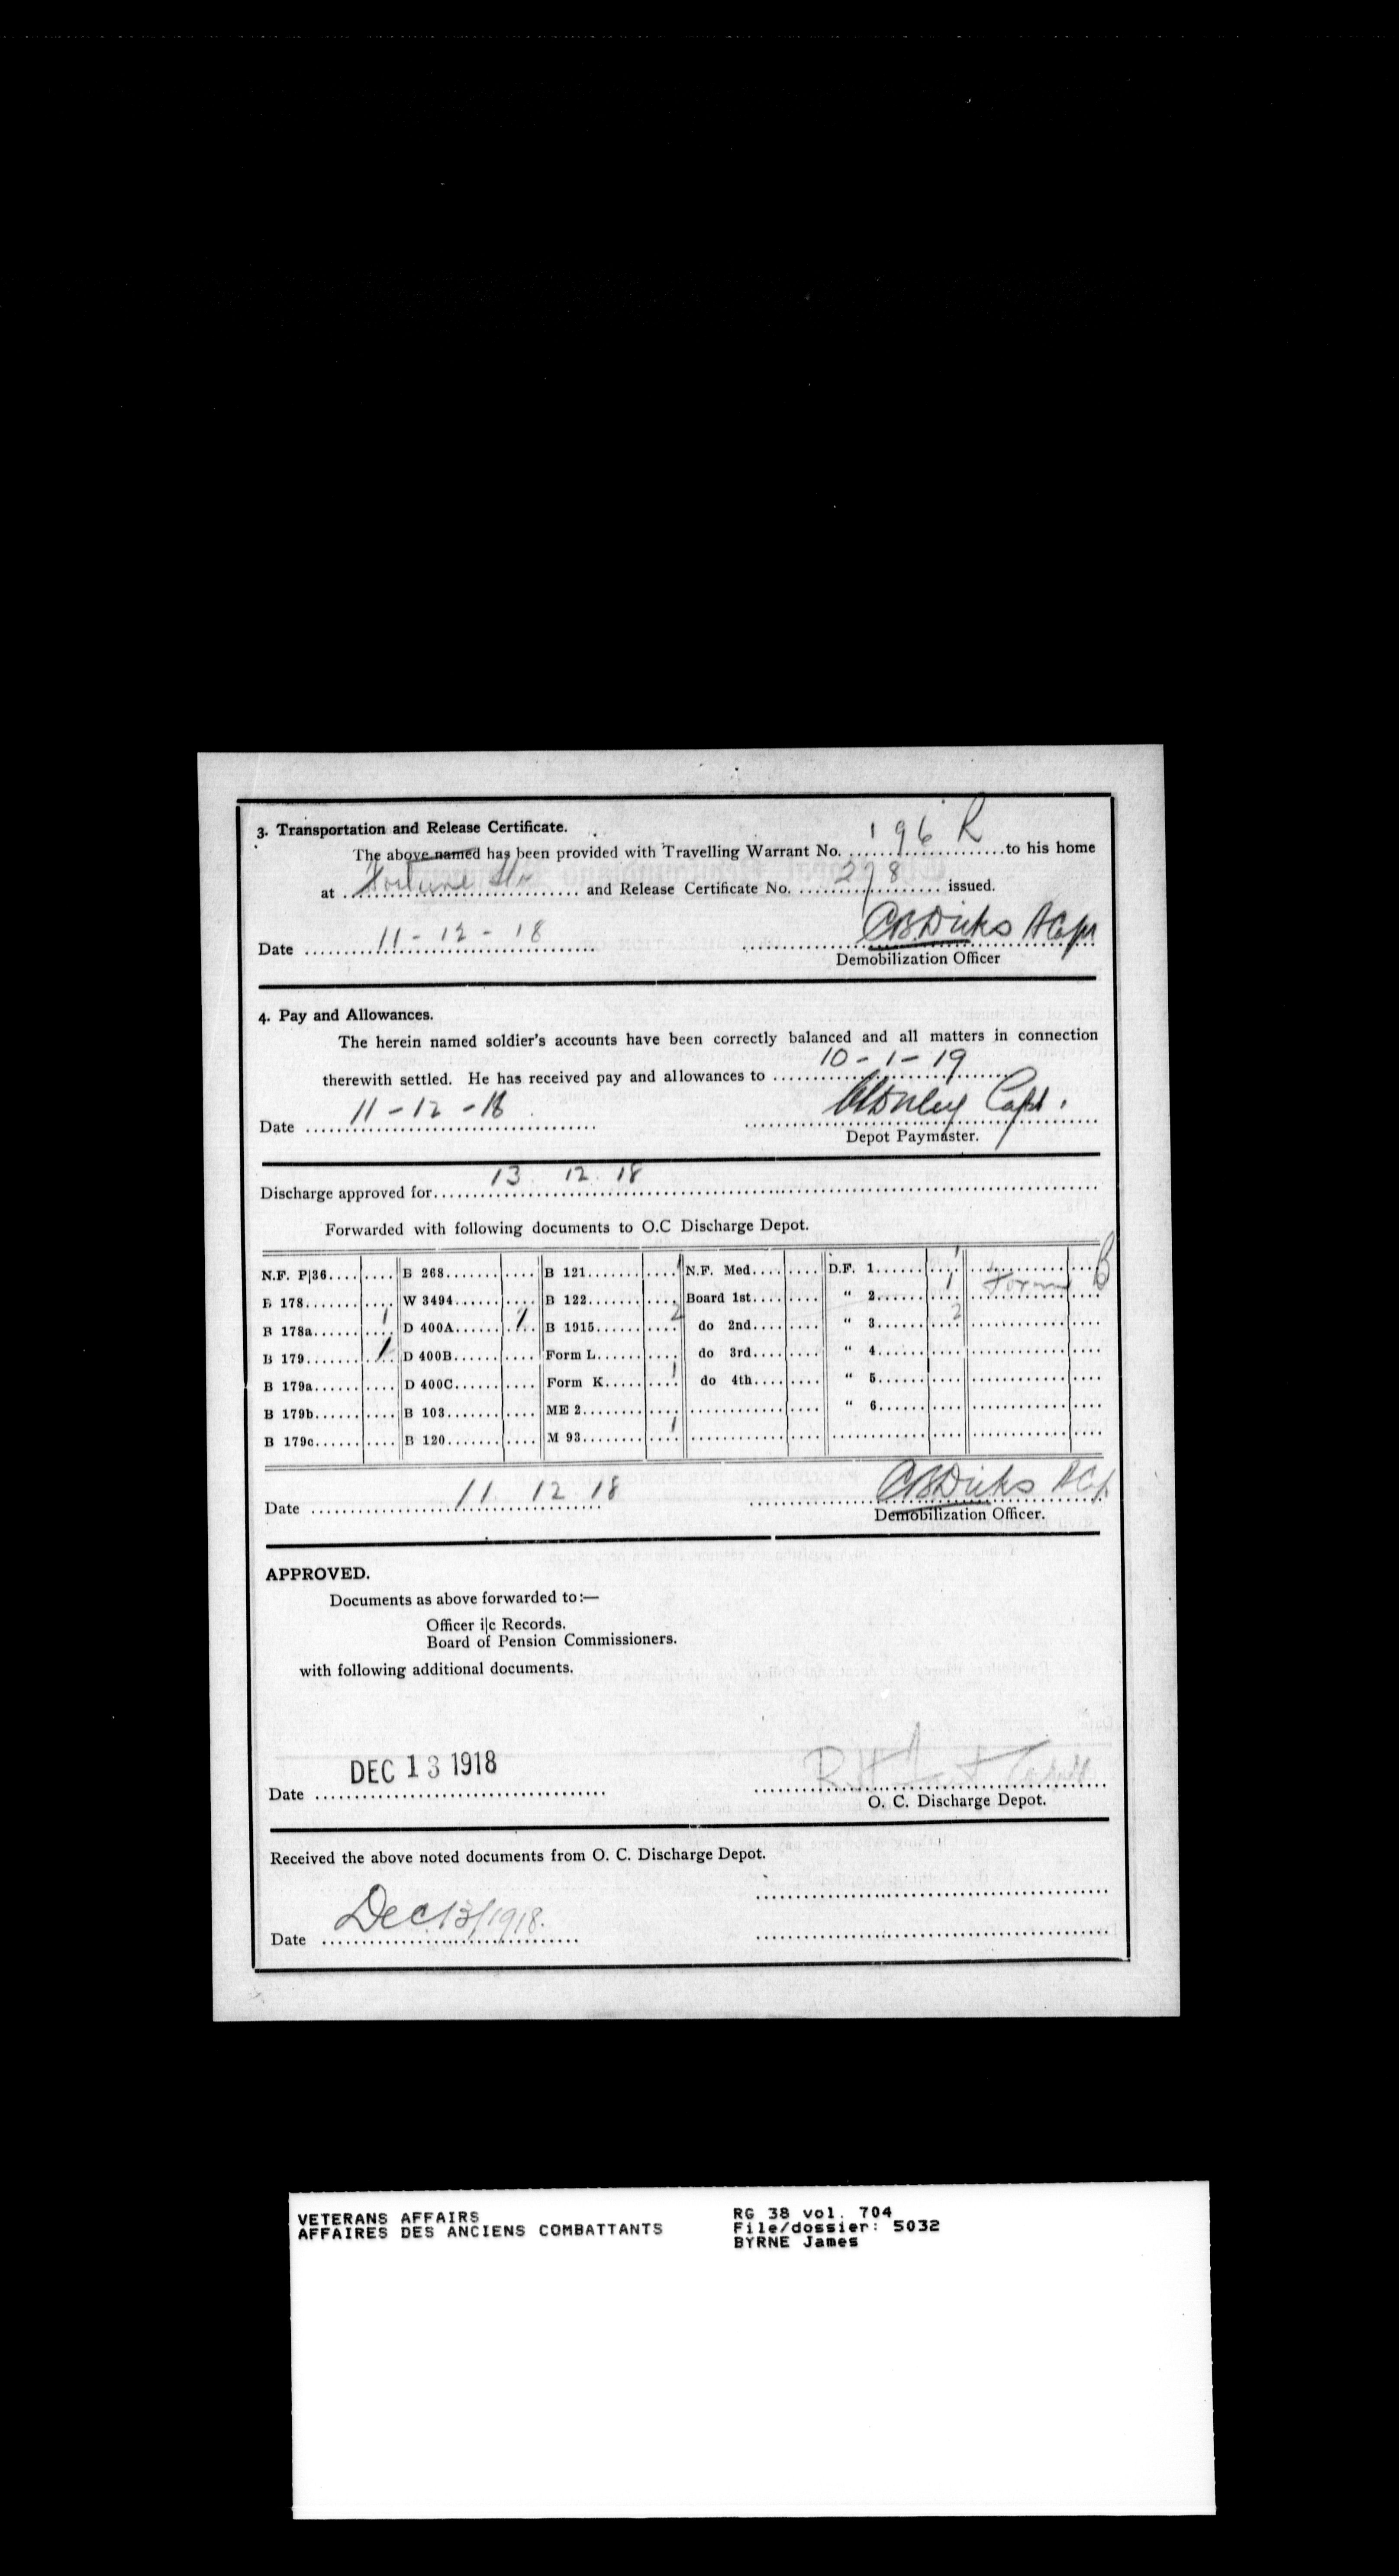 3. Transportation and Release Certificate.
196 R
The above named has been provided with Travelling Warrant No. .................... to his home
at Fortune Hr and Release Certificate No. 278 issued.
Date 11-12-18 C.B. Dicks A/Capt
Demobilization Officer
4. Pay and Allowances.
The herein named soldier's accounts have been correctly balanced and all matters in connection
therewith settled. He has received pay and allowances to 10-1-19
Date 11-12-18 Capt.
Depot Paymaster.
Discharge approved for 13 12 18
Forwarded with following documents to O.C Discharge Depot.
N.F. P|36 B 268 B 121 1 N.F. Med. D.F. 1 1
B 178 W 3494 B 122 Board 1st " 2 1 Form B
B 178a 1 D 400A 1 B 1915 2 do 2nd " 3 2
B 179 1 D 400B Form L do 3rd " 4
B 179a D 400C Form K 1 do 4th " 5
B 179b B 103 ME 2 " 6
B 179c B 120 M 93 1
Date 11 12 18 C.B. Dicks A/Cap
Demobilization Officer.
APPROVED.
Documents as above forwarded to:—
Officer i|c Records.
Board of Pension Commissioners.
with following additional documents.
Date DEC 13 1918
O. C. Discharge Depot.
Received the above noted documents from O. C. Discharge Depot.
Date Dec 13/1918.
VETERANS AFFAIRS RG 38 vol. 704
AFFAIRES DES ANCIENS COMBATTANTS File/dossier: 5032
BYRNE James